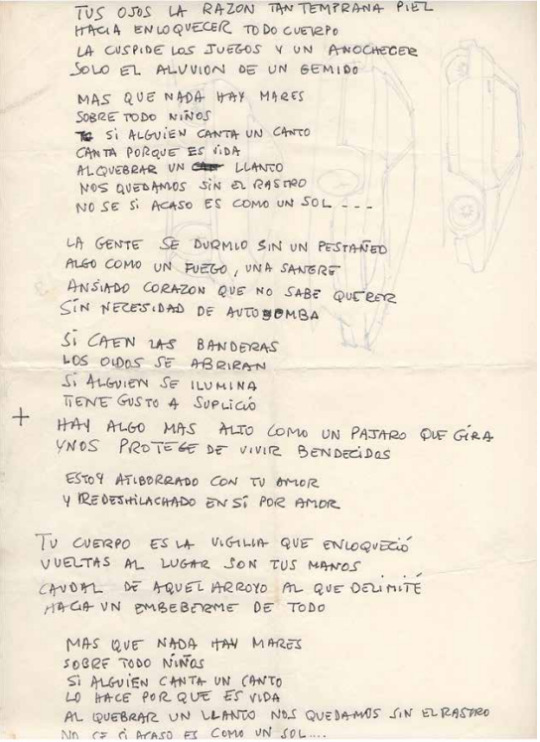 TUS OJOS LA RAZON TAN TEMPRANA PIEL
HACIA ENLOQUECER TODO CUERPO
LA CUSPIDE LOS JUEGOS Y UN ANOCHECER
SOLO EL ALUVION DE UN GEMIDO
MAS QUE NADA HAY MARES
SOBRE TODO NIÑOS
SI ALGUIEN CANTA UN CANTO
CANTA PORQUE ES VIDA
AL QUEBRAR UN LLANTO
NOS QUEDAMOS SIN EL RASTRO
NO SE SI ACASO ES COMO UN SOL ---
LA GENTE SE DURMIO SIN UN PESTAÑEO
ALGO COMO UN FUEGO, UNA SANGRE
ANSIADO CORAZON QUE NO SABE QUERER
SIN NECESIDAD DE AUTOBOMBA
SI CAEN LAS BANDERAS
LOS OIDOS SE ABRIRAN
SI ALGUIEN SE ILUMINA
TIENE GUSTO A SUPLICIÓ
+ HAY ALGO MAS ALTO COMO UN PAJARO QUE GIRA
Y NOS PROTEGE DE VIVIR BENDECIDOS
ESTOY ATIBORRADO CON TU AMOR
Y REDESHILACHADO EN SÍ POR AMOR
TU CUERPO ES LA VIGILIA QUE ENLOQUECIÓ
VUELTAS AL LUGAR SON TUS MANOS
CAUDAL DE AQUEL ARROYO AL QUE DELIMITÉ
HACIA UN EMBEBERME DE TODO
MAS QUE NADA HAY MARES
SOBRE TODO NIÑOS
SI ALGUIEN CANTA UN CANTO
LO HACE POR QUE ES VIDA
AL QUEBRAR UN LLANTO NOS QUEDAMOS SIN EL RASTRO
NO SE SI ACASO ES COMO UN SOL....